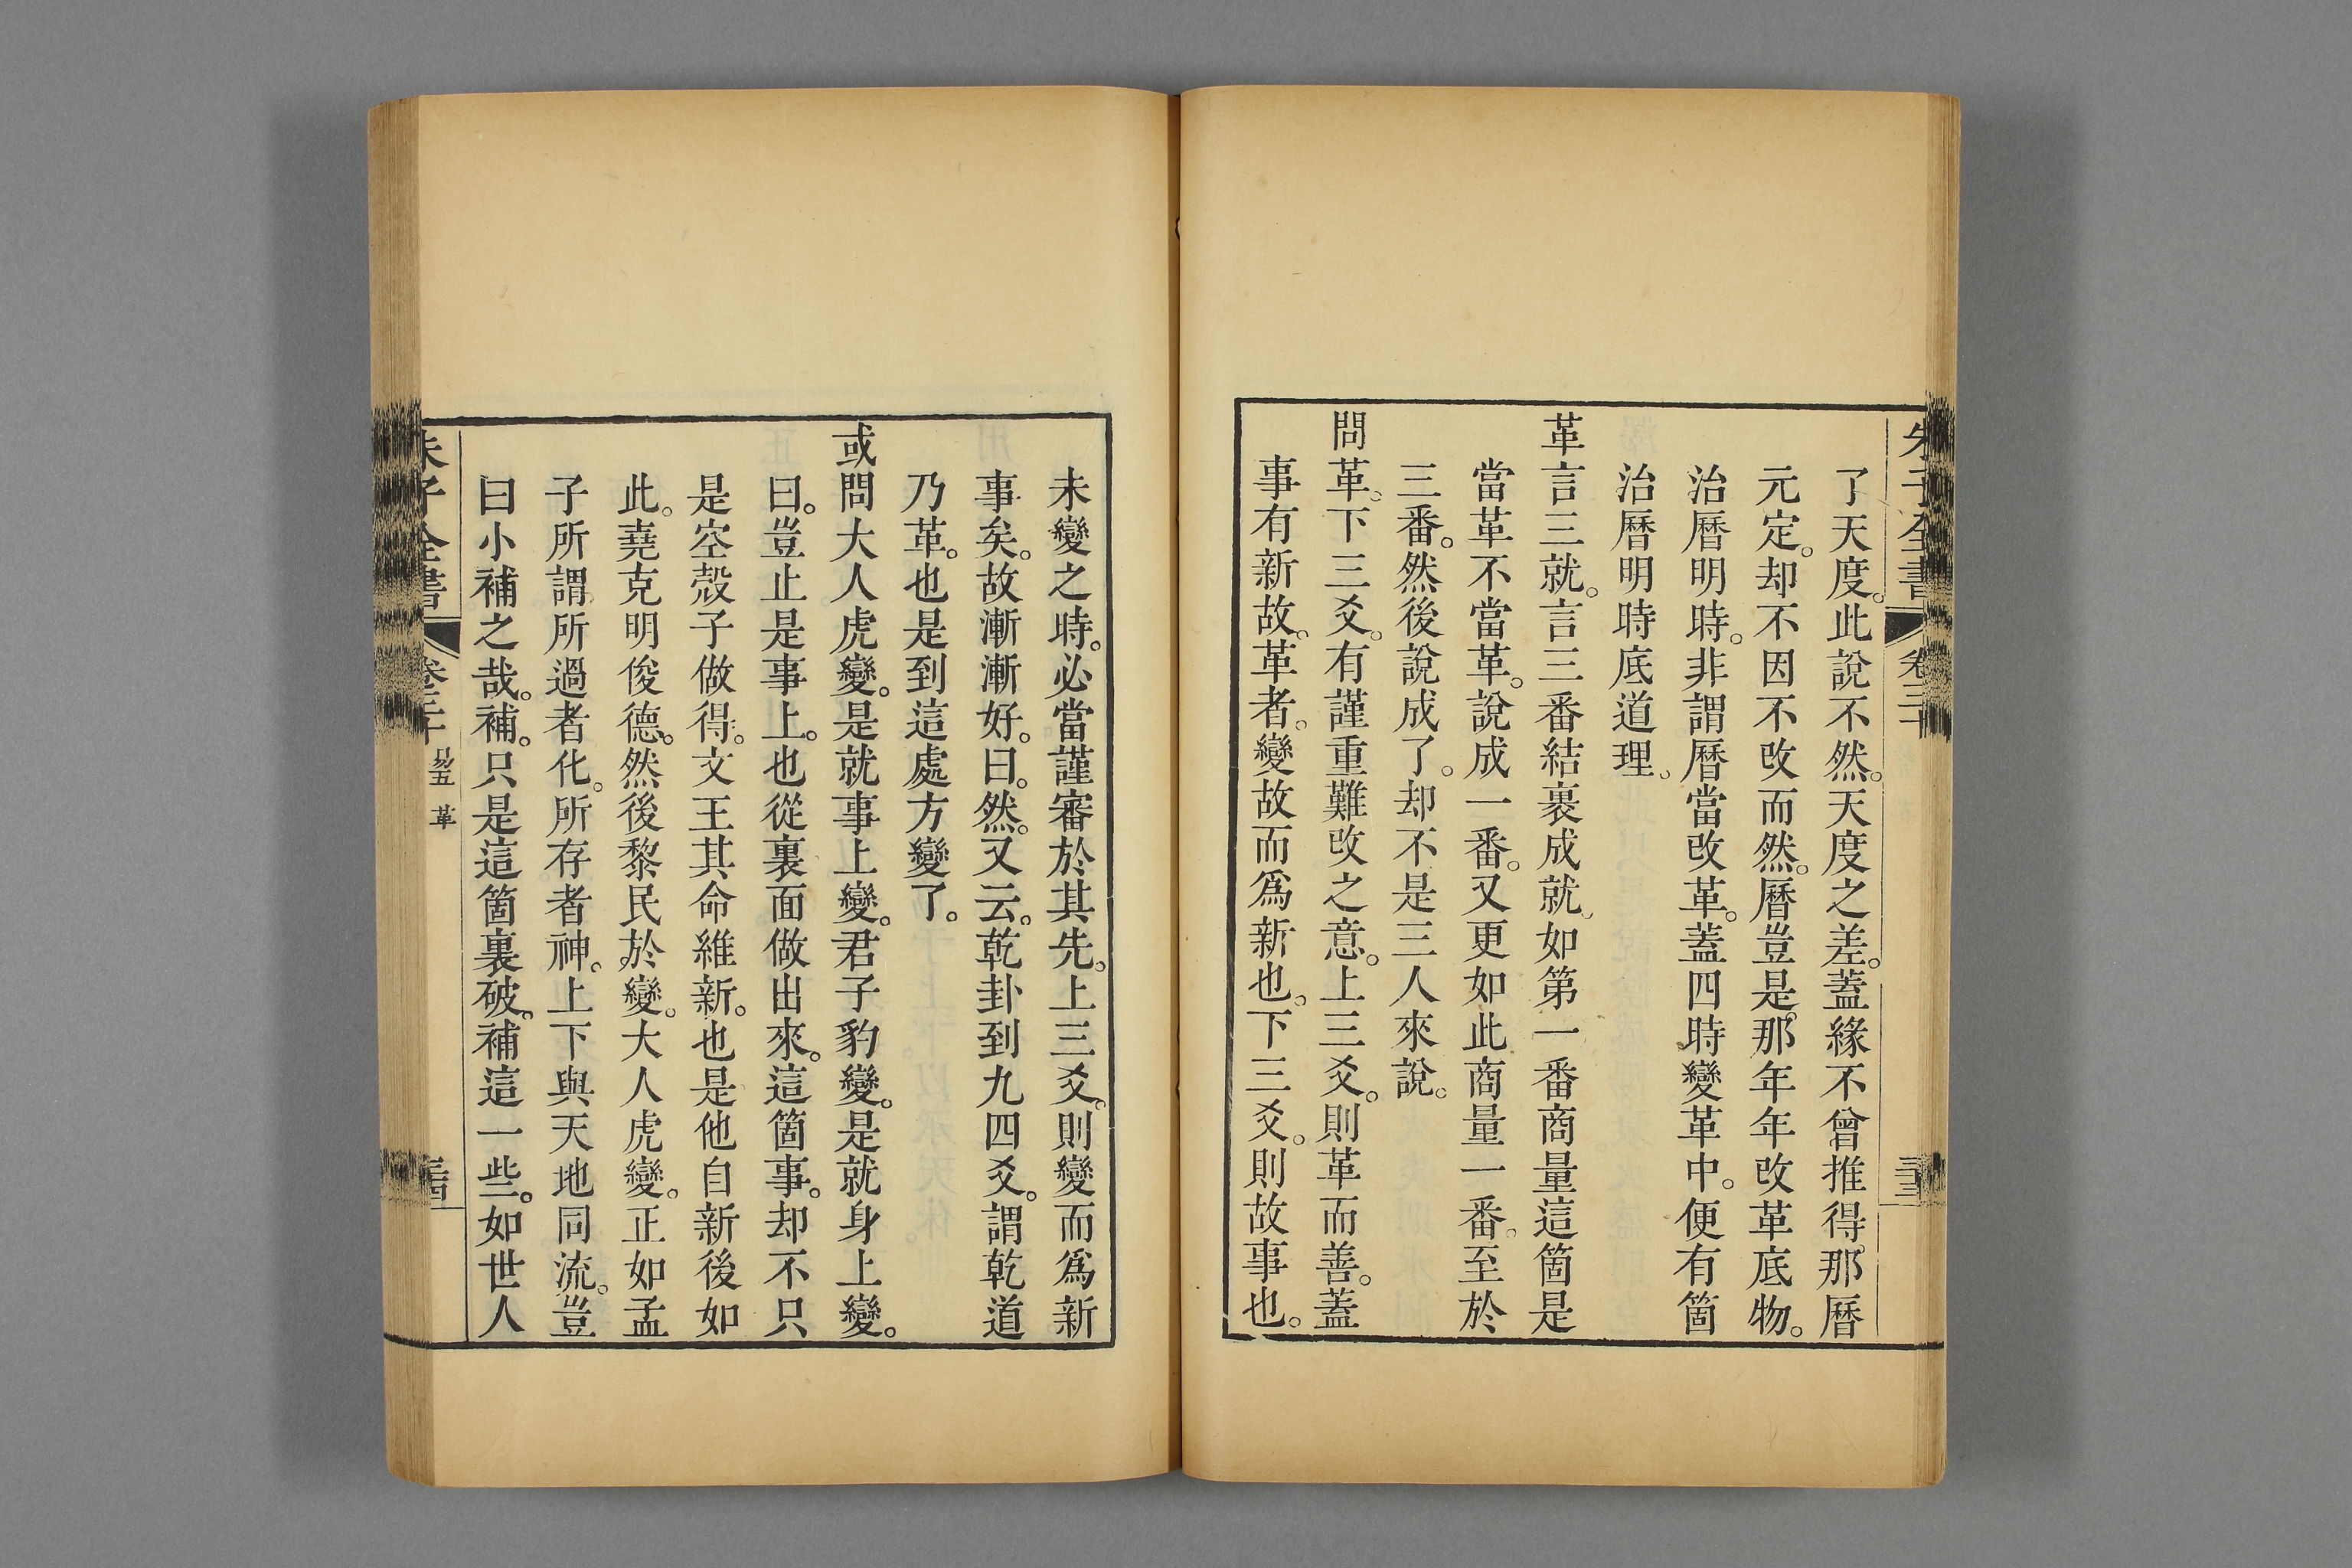 朱子全書 卷三十
了天度。此說不然。天度之差。蓋緣不曾推得。那曆
元定。却不因不改而然。曆豈是。那年年改革底物。
治曆明時。非謂曆當改革。蓋四時變革中。便有箇
治曆明時底道理。
革言三就。言三番結裹成就。如第一番商量這箇是
當革不當革。說成一番。又更如此商量一番。至於
三番。然後說成了。却不是三人來說。
問革。下三爻。有謹重難改之意。上三爻。則革而善。蓋
事有新故。革者。變故而爲新也。下三爻。則故事也。
未變之時。必當謹審於其先。上三爻。則變而爲新
事矣。故漸漸好。曰。然。又云。乾卦到九四爻。謂乾道
乃革。也是到這處方變了。
或問大人虎變。是就事上變。君子豹變。是就身上變。
曰。豈止是事上。也從裏面做出來。這箇事。却不只
是空殼子做得。文王其命維新。也是他自新後如
此。堯克明俊德。然後黎民於變。大人虎變。正如孟
子所謂所過者化。所存者神。上下與天地同流。豈
曰小補之哉。補。只是這箇裏破。補這一些。如世人
朱子全書 卷三十 易五 革 三四